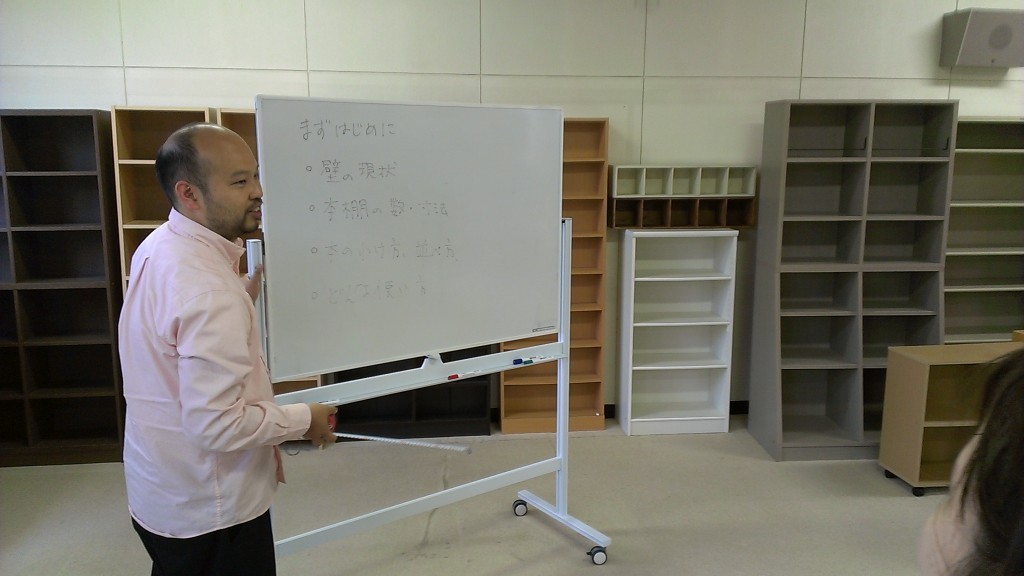 まずはじめに
○壁の現状
○本棚の数・寸法
○本の分け方、並べ方
○どんな使い方